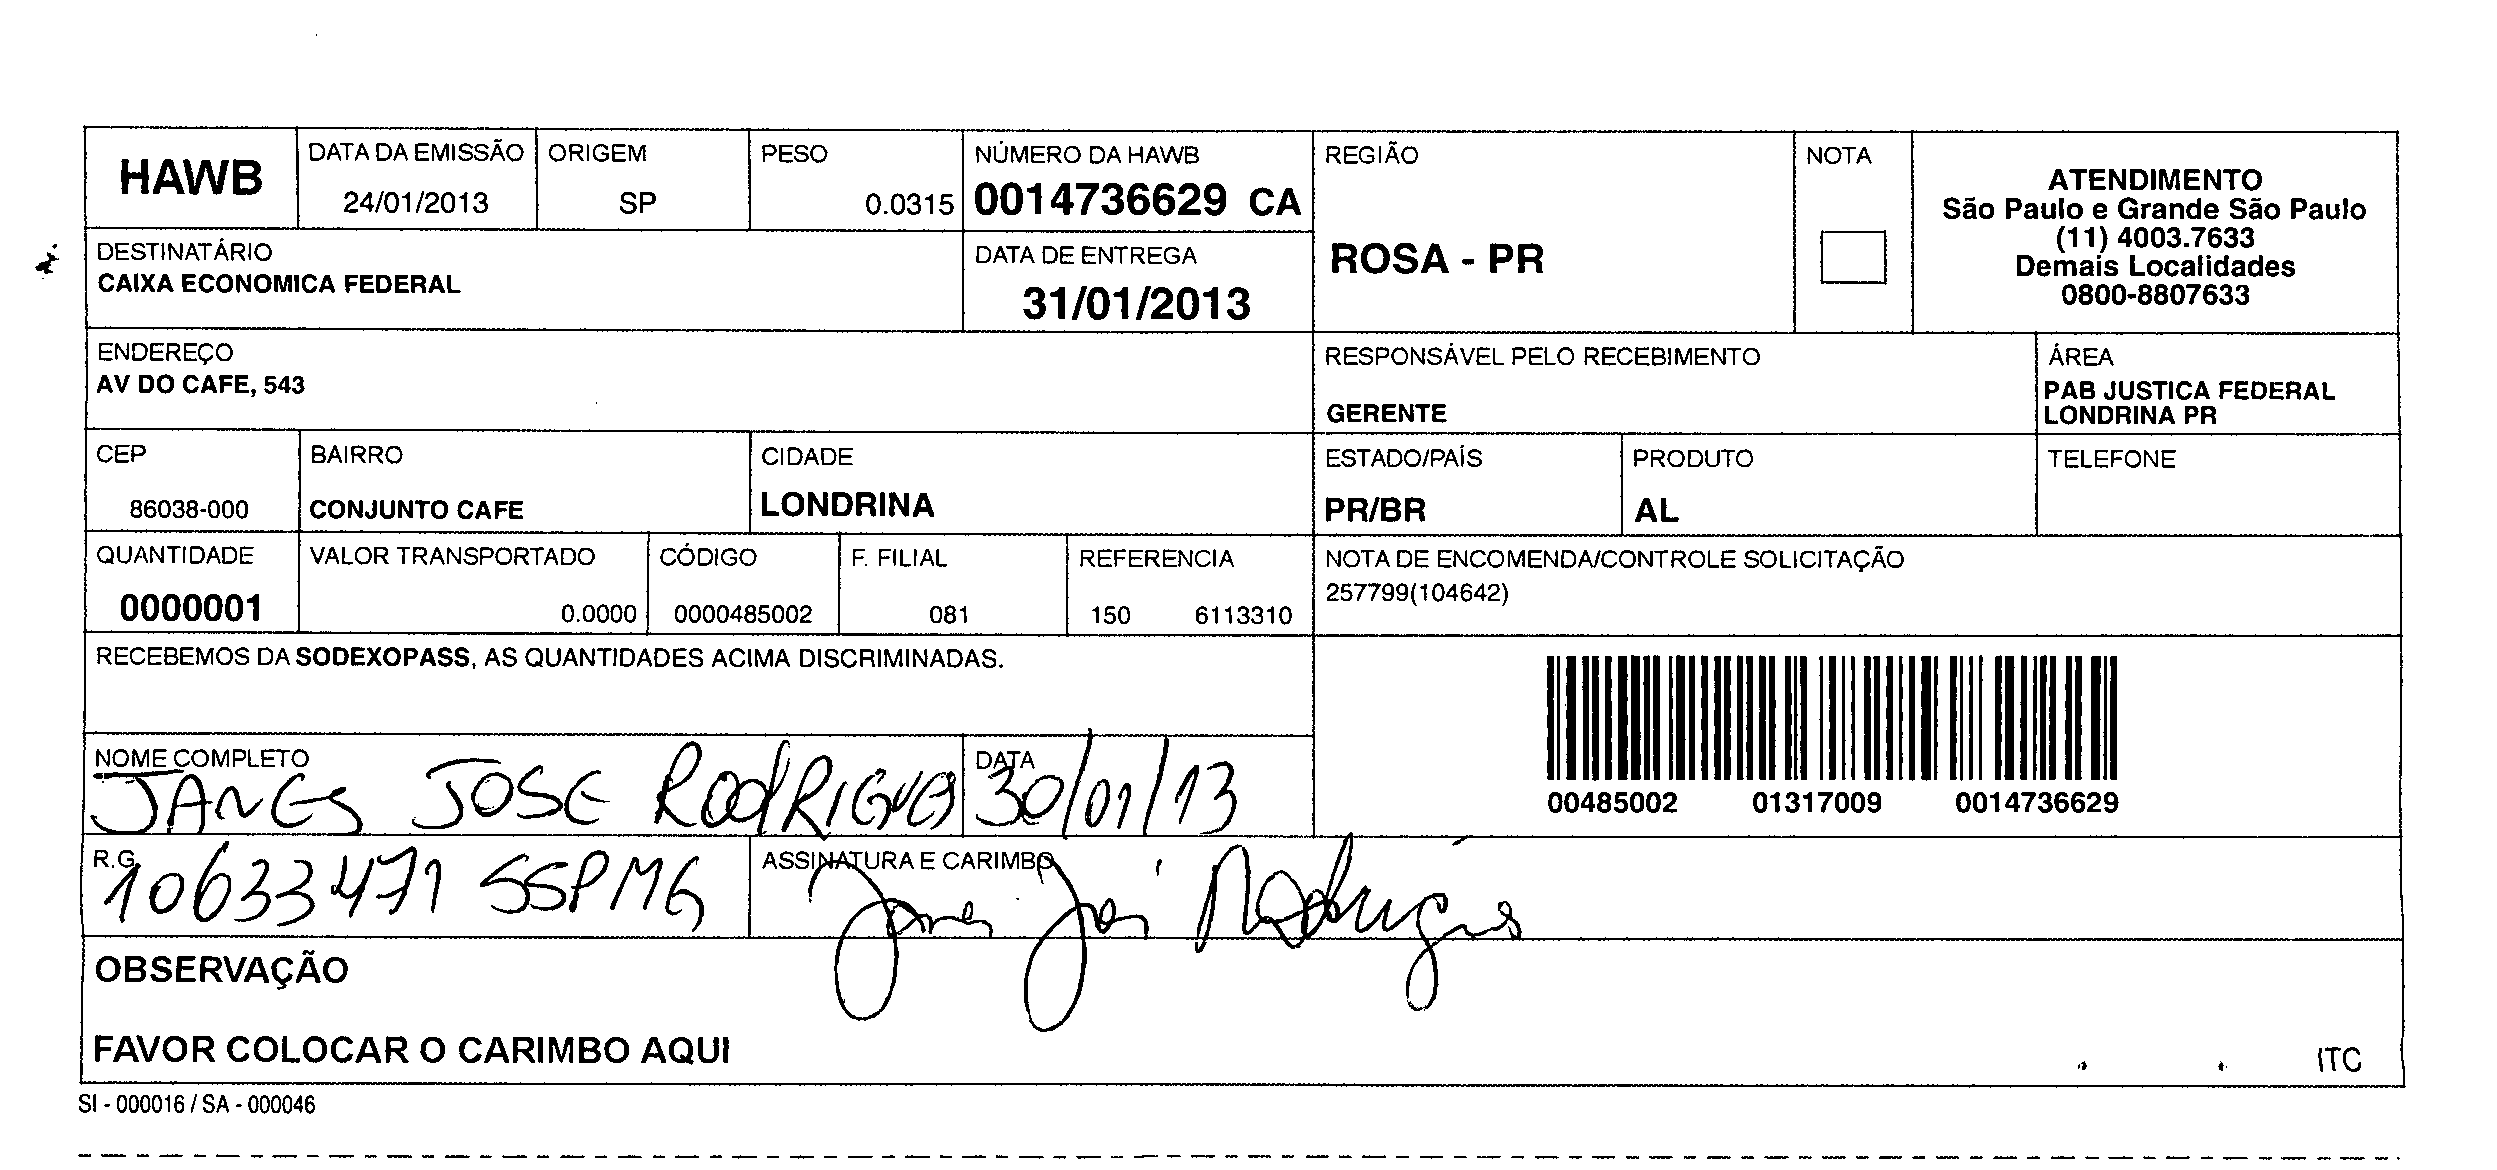 HAWB
DATA DA EMISSÃO
24/01/2013
ORIGEM
SP
PESO
0.0315
NÚMERO DA HAWB
0014736629 CA
REGIÃO
ROSA - PR
NOTA
ATENDIMENTO
São Paulo e Grande São Paulo
(11) 4003.7633
Demais Localidades
0800-8807633
DESTINATÁRIO
CAIXA ECONOMICA FEDERAL
DATA DE ENTREGA
31/01/2013
ENDEREÇO
AV DO CAFE, 543
RESPONSÁVEL PELO RECEBIMENTO
GERENTE
ÁREA
PAB JUSTICA FEDERAL
LONDRINA PR
CEP
86038-000
BAIRRO
CONJUNTO CAFE
CIDADE
LONDRINA
ESTADO/PAÍS
PR/BR
PRODUTO
AL
TELEFONE
QUANTIDADE
0000001
VALOR TRANSPORTADO
0.0000
CÓDIGO
0000485002
F. FILIAL
081
REFERENCIA
150 6113310
NOTA DE ENCOMENDA/CONTROLE SOLICITAÇÃO
257799(104642)
RECEBEMOS DA SODEXOPASS, AS QUANTIDADES ACIMA DISCRIMINADAS.
00485002 01317009 0014736629
NOME COMPLETO
JANES JOSE RODRIGUES
DATA
30/01/13
R.G.
10633471 SSPMG
ASSINATURA E CARIMBO
Janes José Rodrigues
OBSERVAÇÃO
FAVOR COLOCAR O CARIMBO AQUI
ITC
SI - 000016 / SA - 000046